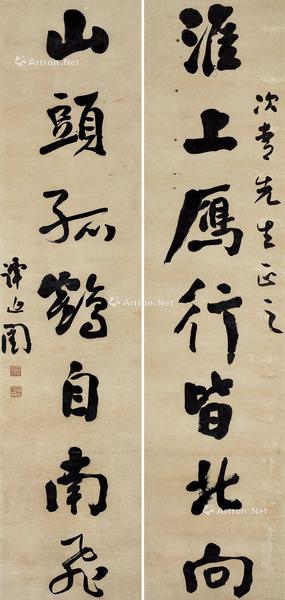 次青先生正之
淮上鴈行皆北向
山頭孤鶴自南飛
譚延闓
Artron.Net
Artron.Net
Artron.Net
Artron.Net
Artron.Net